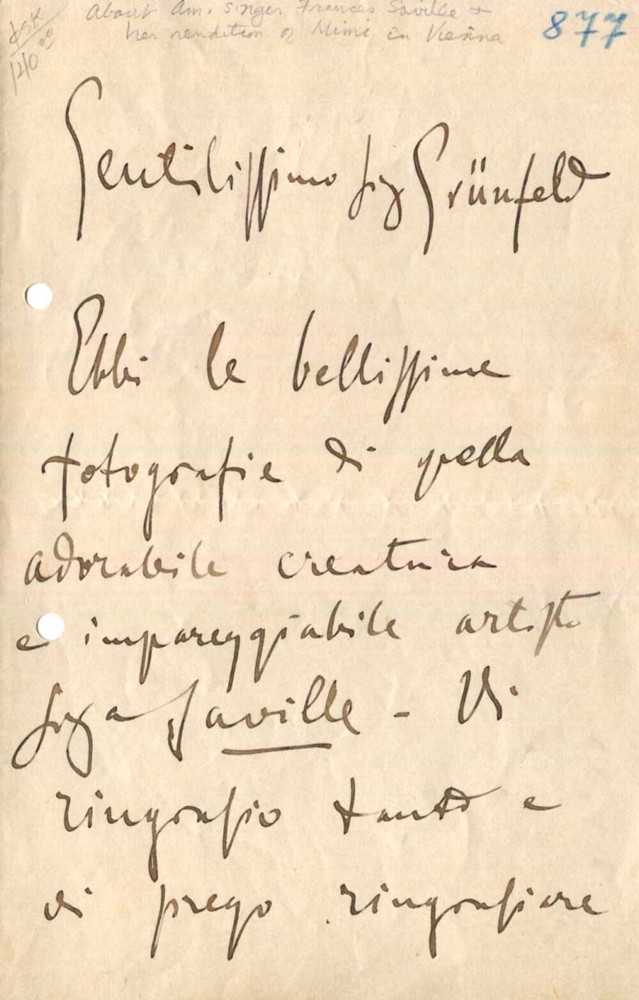 About Am. singer Frances Saville &
her rendition of Mimi in Vienna
877
Gentilissimo Sig Grünfeld
Ebbi le bellissime
fotografie di quella
adorabile creatura
e impareggiabile artista
Sig a Saville - Vi
ringrasio tanto e
vi prego ringrasiare